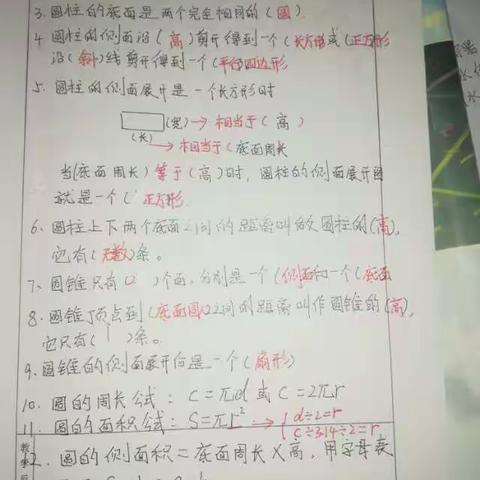 3. 圆柱的底面是两个完全相同的(圆)
4 圆柱的侧面沿(高)剪开得到一个(长方形或(正方形
沿(斜)线剪开得到一个(平行四边形
5. 圆柱的侧面展开是一个长方形时
(宽)→相当于(高)
(长)→相当于(底面周长
当(底面周长)等于(高)时,圆柱的侧面展开图
就是一个(正方形
6、圆柱上下两个底面之间的距离叫做圆柱的(高),
它有(无数)条。
7、圆锥只有(2)个面,分别是一个(侧面和一个(底面
8、圆锥顶点到(底面圆心之间的距离叫作圆锥的(高),
它只有(1)条。
9、圆锥的侧面展开后是一个(扇形)
10. 圆的周长公式: C=πd 或 C=2πr
11. 圆的面积公式: S=πr² → { d÷2=r
C÷3.14÷2=r
2. 圆的侧面积=底面周长×高,用字母表
教学